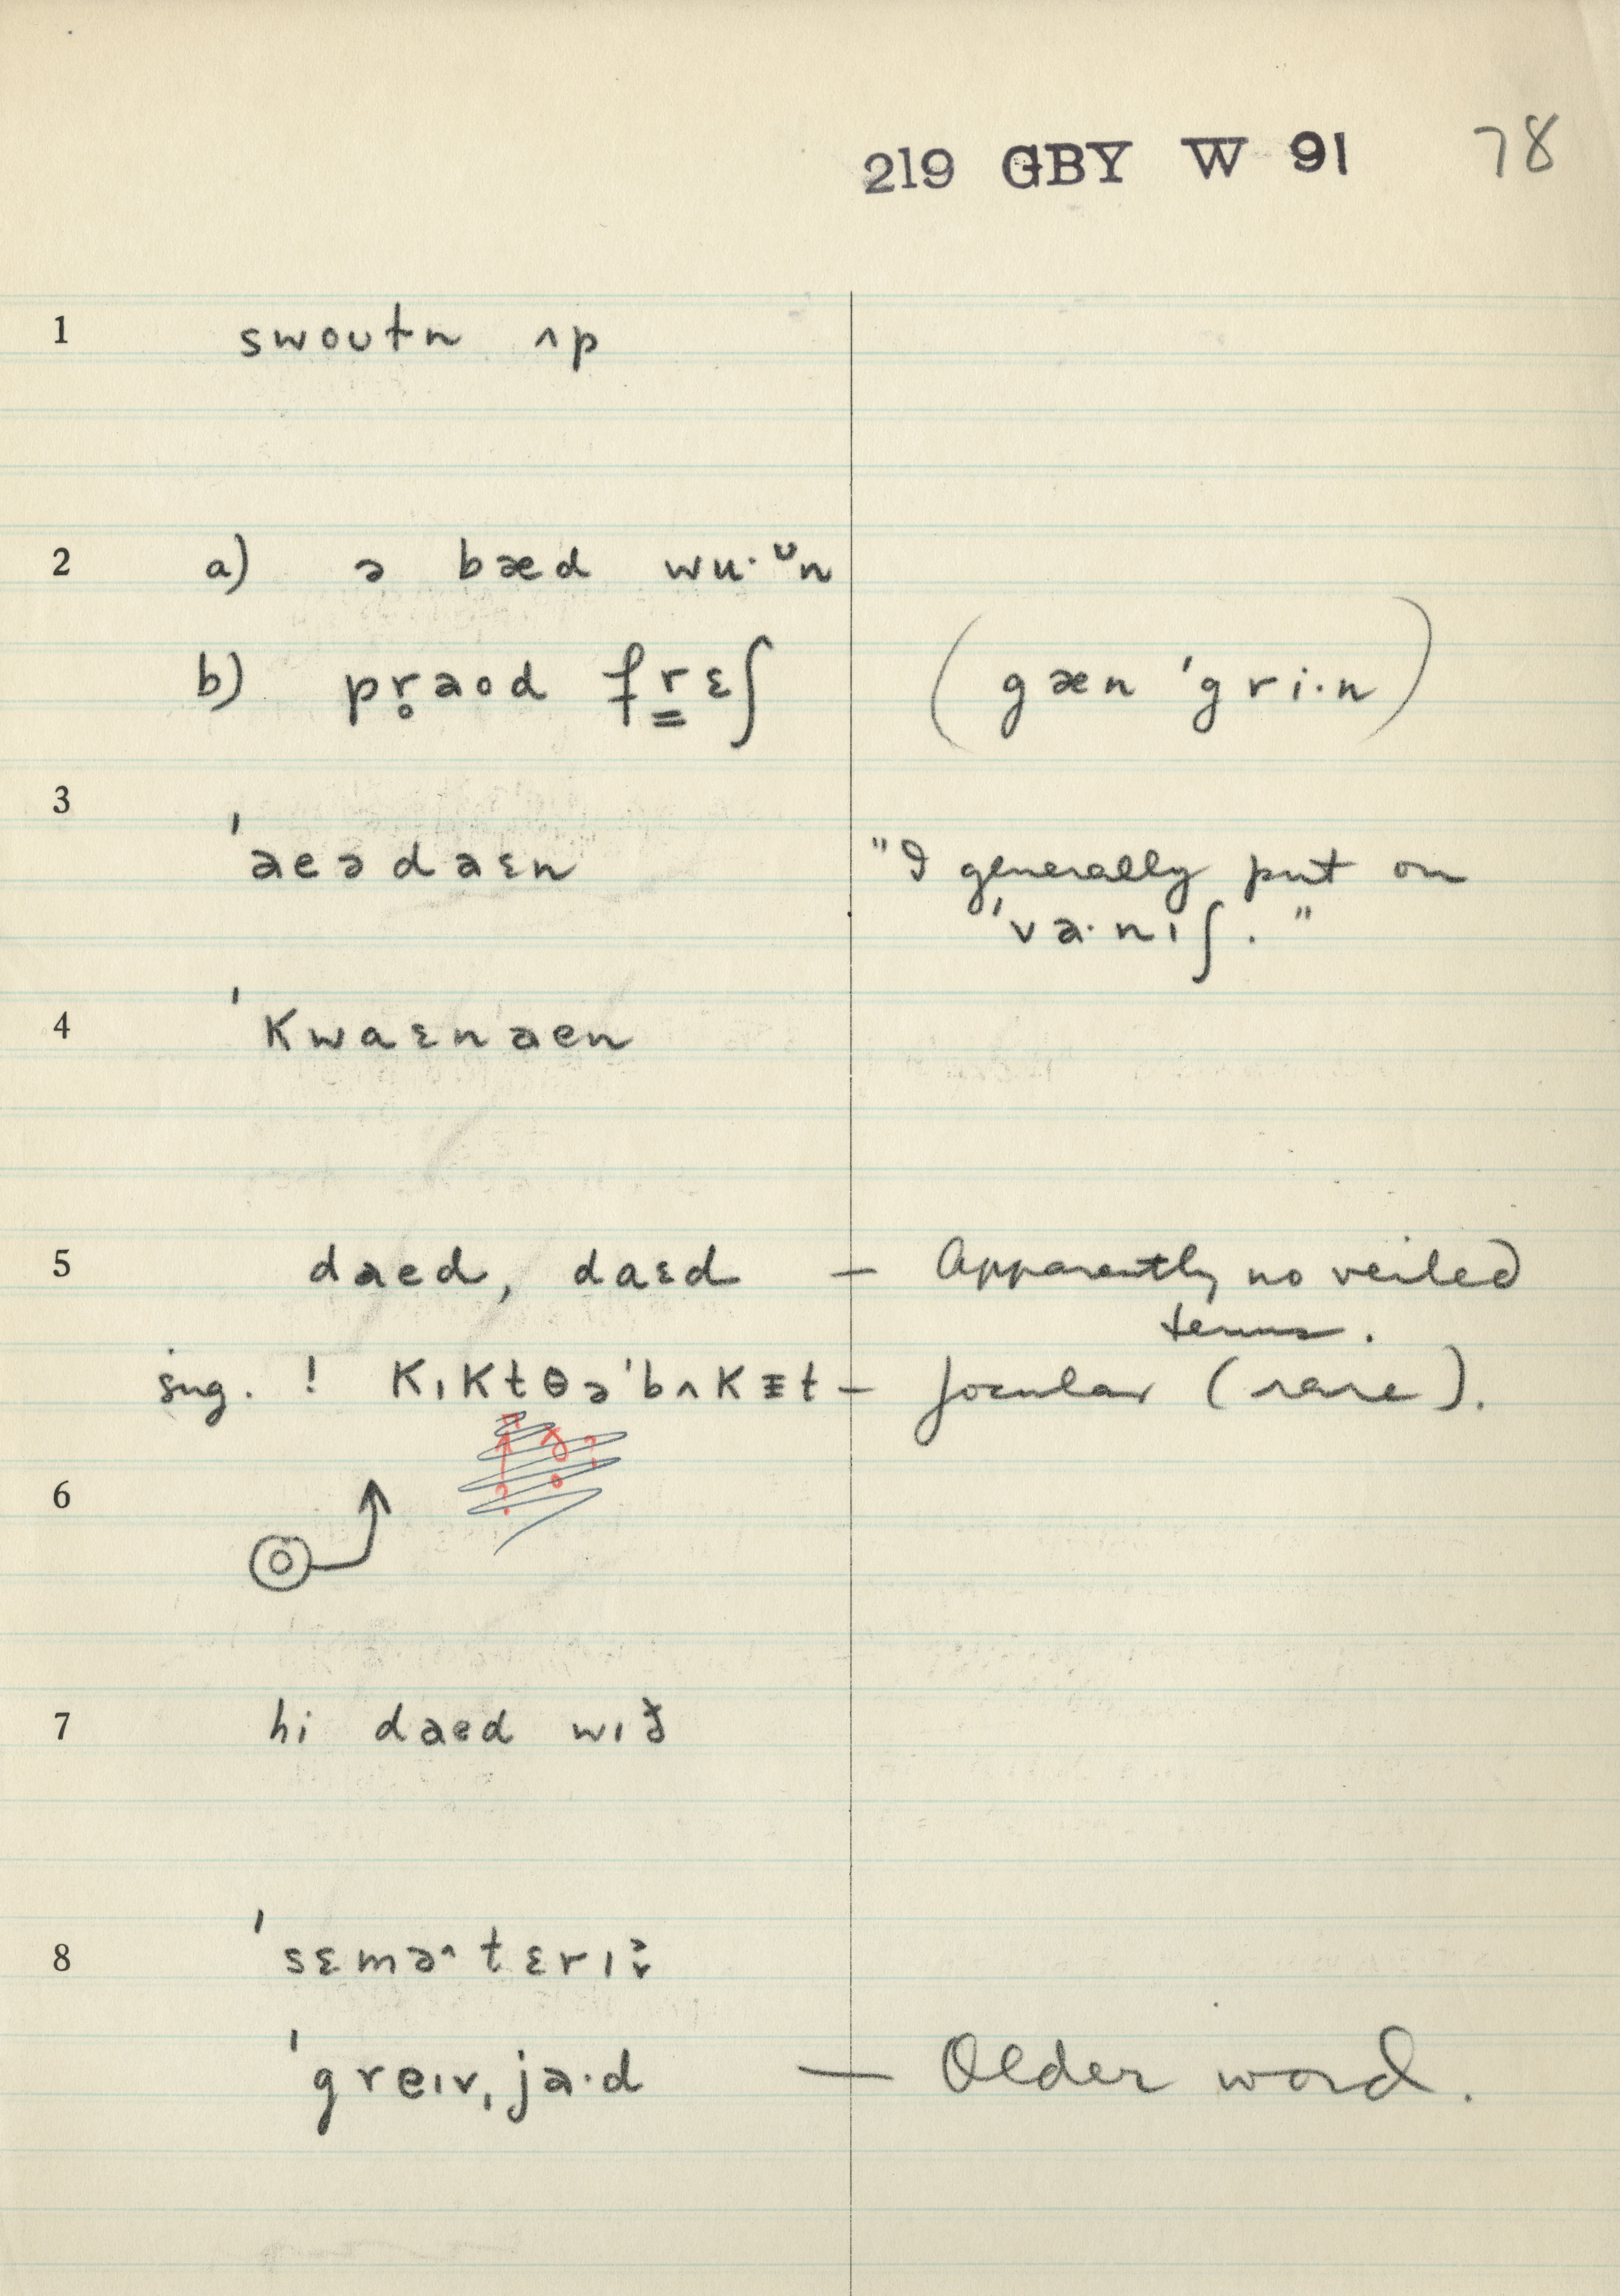 219 GBY W 91 78
1 swoutn ʌp
2 a) ə bæd wu·ᶷn
b) pr̥aod fr̳ɛʃ (gæn ˈgri·n)
3 ˈaeədaɛn "I generally put on
ˈva·nıʃ."
4 ˈkwaɛnaen
5 daed, daɛd – Apparently no veiled
terms.
sug. ! kıktðəˈbʌkɪt – Jocular (rare).
6
7 hi daed wıð
8 ˈsɛmə˄tɛrı
ˈgreıvˌja·d – Older word.